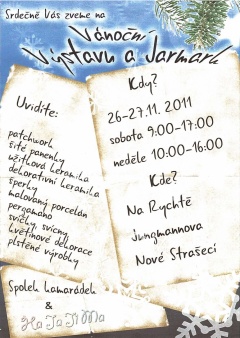 Srdečně Vás zveme na
Vánoční
Výstavu a Jarmark
Kdy?
26-27.11. 2011
sobota 9:00-17:00
neděle 10:00-16:00
Kde?
Na Rychtě
Jungmannova
Nové Strašecí
Uvidíte:
patchwork
šité panenky
užitková keramika
dekorativní keramika
šperky
malovaný porcelán
pergamano
svíčky, svícny
květinové dekorace
plstěné výrobky
Spolek kamarádek
&
HaTaJiMa